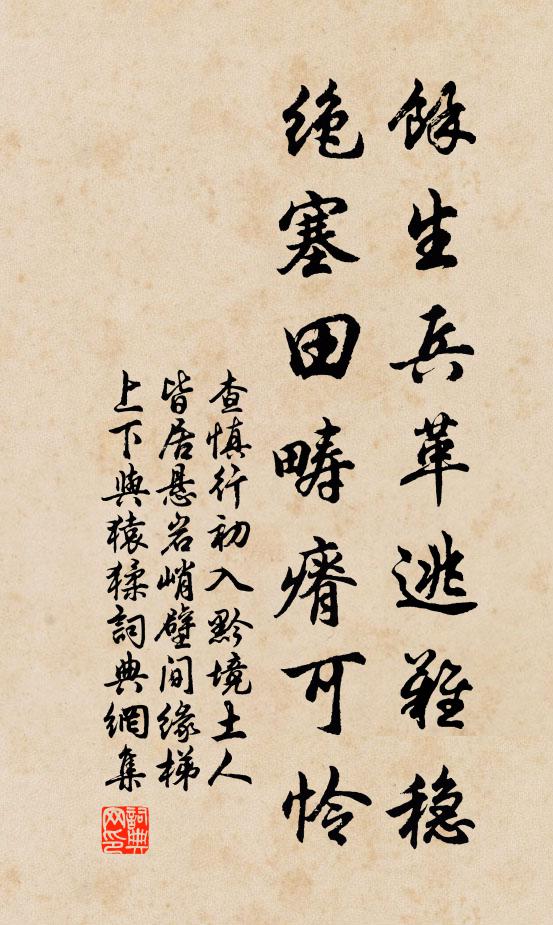 餘生兵革逃難穩
絶塞田疇瘠可怜
查慎行初入黔境土人
皆居悬岩峭壁间缘梯
上下與猿猱詞典網集
詞典网印